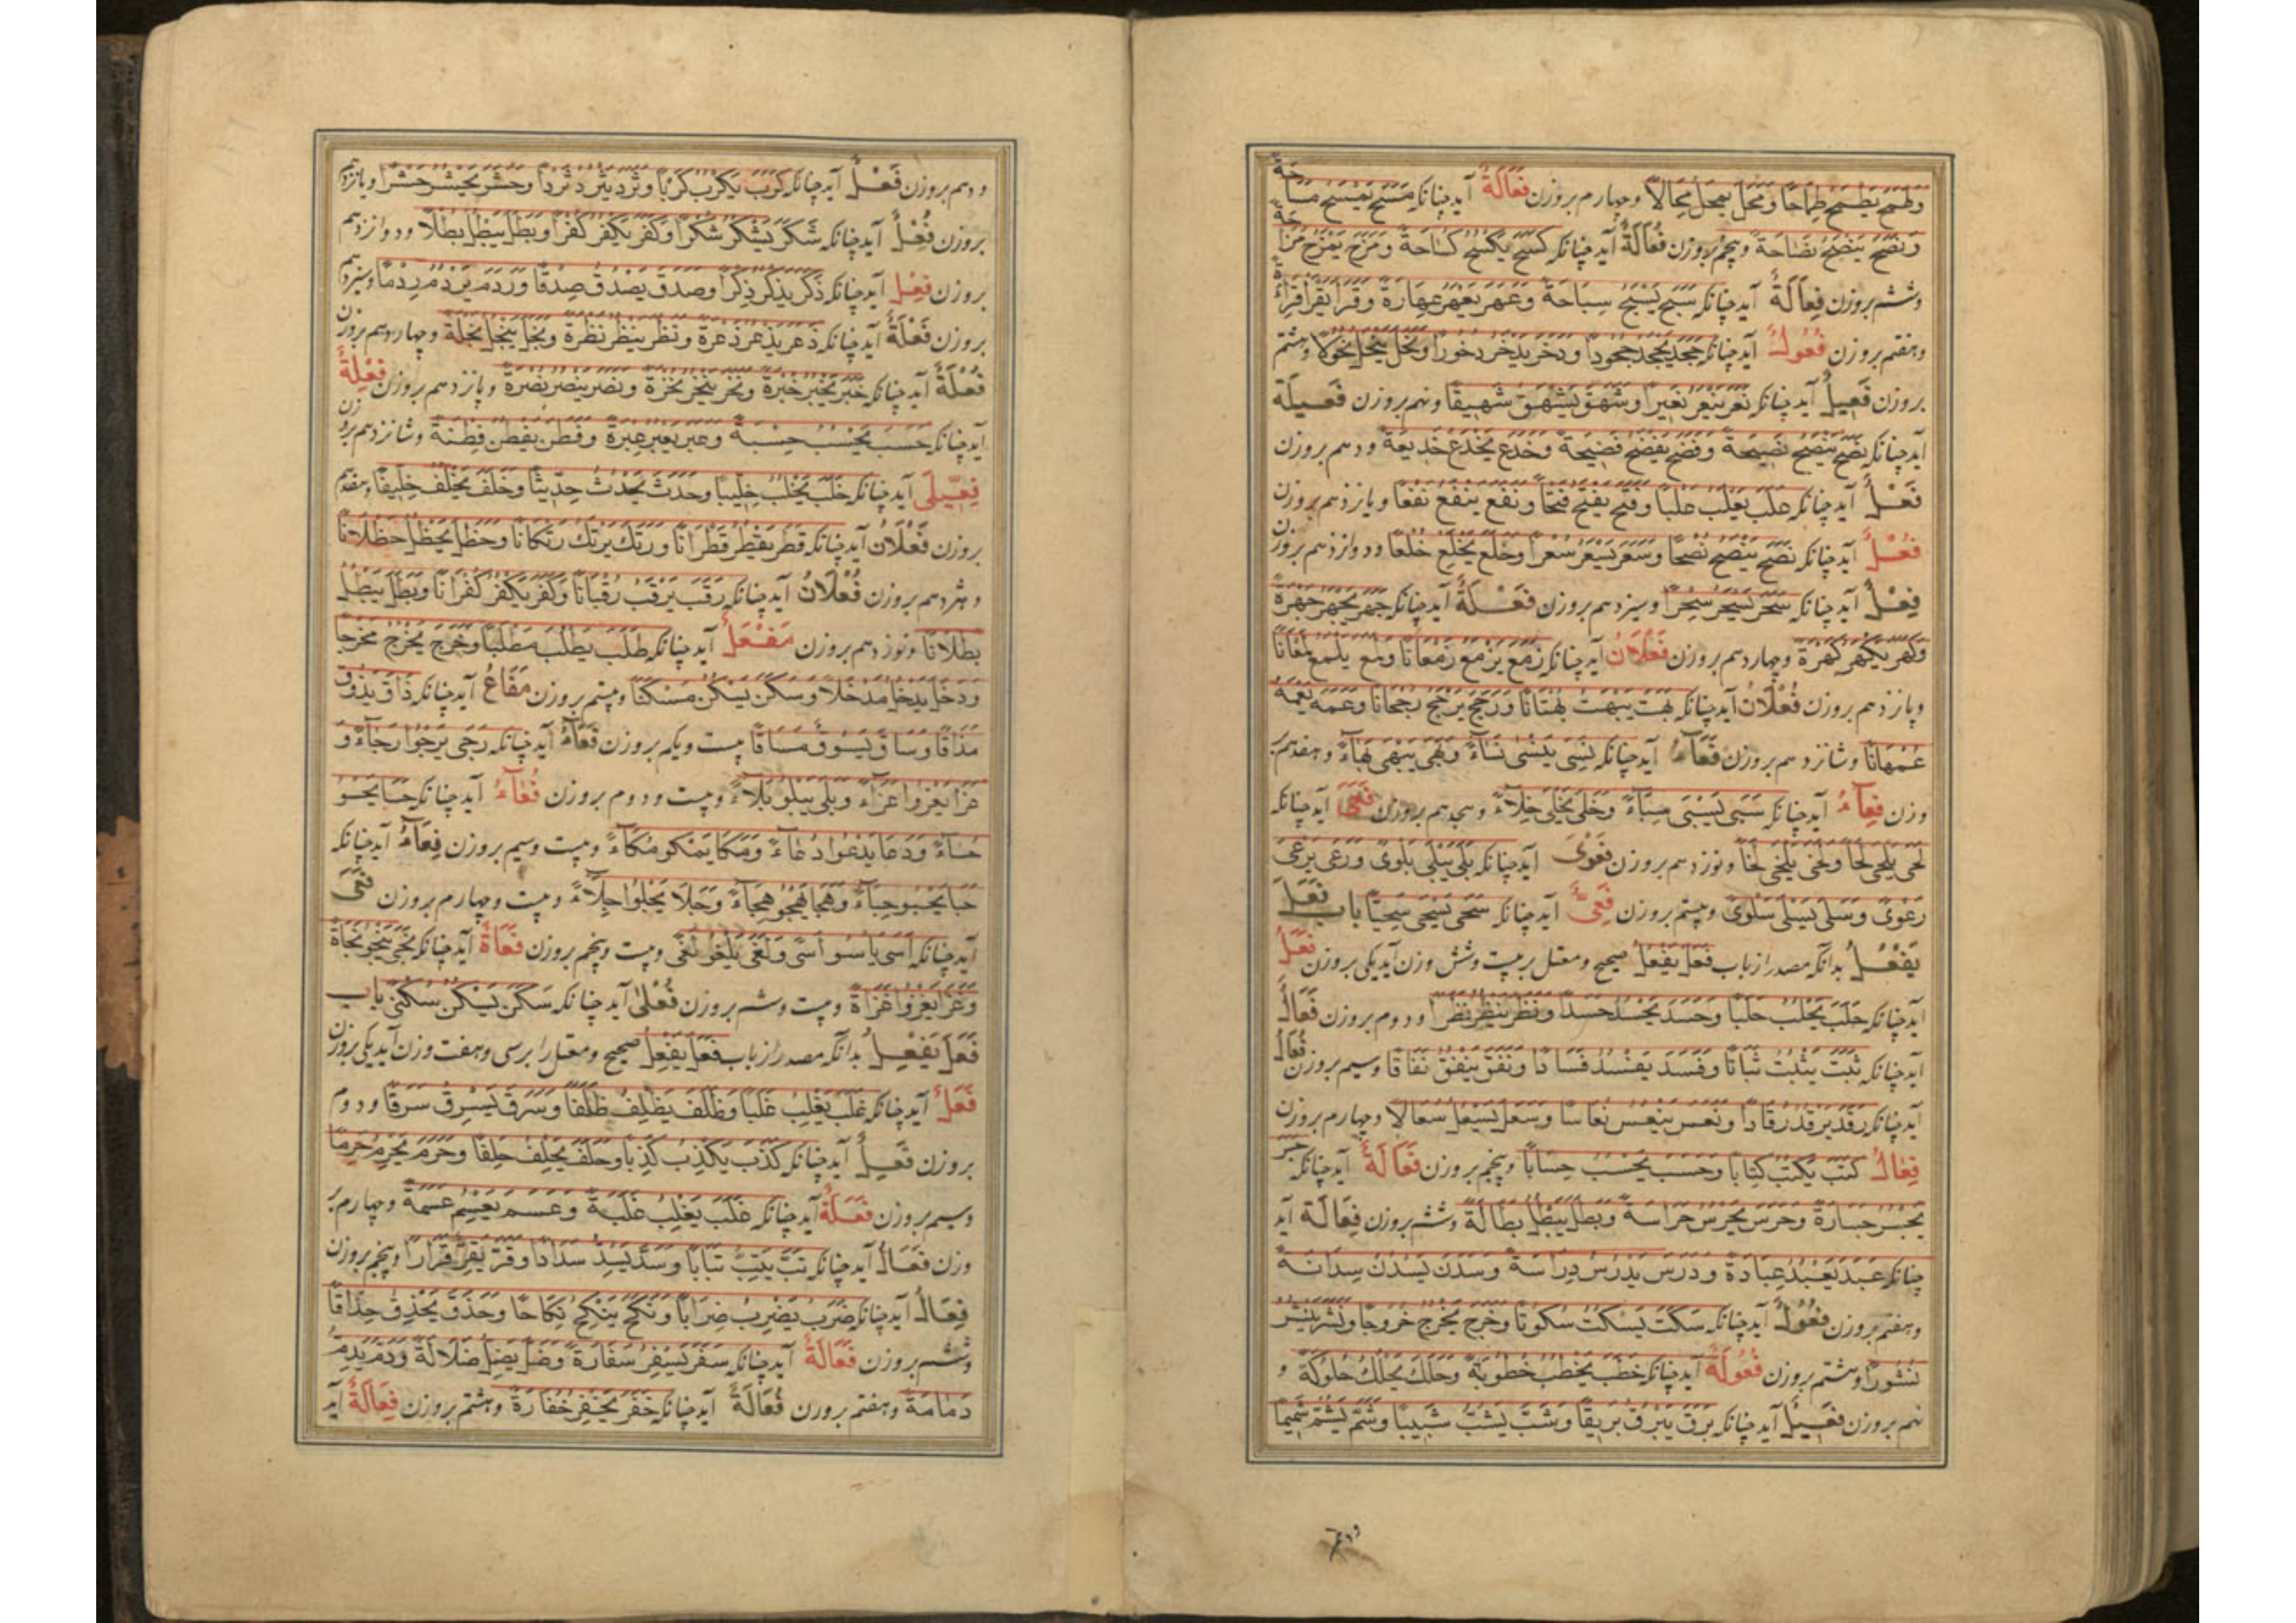 وطمح یطمح طماحا ومحل یمحل محالا وچهارم بروزن فَعَالَةٌ آید چنانکه مسح یمسح مساحة
ونضح ینضح نضاحة وپنجم بروزن فُعَالَةٌ آید چنانکه کسح یکسح کساحة ومزح یمزح مزاحة
وششم بروزن فِعَالَةٌ آید چنانکه سبح یسبح سباحة وعهر یعهر عهارة وقرا یقرا قراءة
وهفتم بروزن فُعُولٌ آید چنانکه جحد یجحد جحودا ودخر یدخر دخورا ونحل ینحل نحولا وهشتم
بروزن فَعِیلٌ آید چنانکه نعر ینعر نعیرا وشهق یشهق شهیقا ونهم بروزن فَعِیلَة
آید چنانکه نصح ینصح نصیحة وفضح یفضح فضیحة وخدع یخدع خدیعة ودهم بروزن
فَعْلٌ آید چنانکه علب یعلب علبا وفتح یفتح فتحا ونفع ینفع نفعا ویازدهم بروزن
فُعْلٌ آید چنانکه نصح ینصح نصحا وسعر یسعر سعرا وخلع یخلع خلعا ودوازدهم بروزن
فِعْلٌ آید چنانکه سحر یسحر سحرا وسیزدهم بروزن فَعْلَةٌ آید چنانکه جهر یجهر جهرة
وکهر یکهر کهرة وچهاردهم بروزن فَعَلَانٌ آید چنانکه زمع یزمع زمعانا ولمع یلمع لمعانا
وپانزدهم بروزن فُعْلَانٌ آید چنانکه بهت یبهت بهتانا ورجح یرجح رجحانا وعمه یعمه
عمهانا وشانزدهم بروزن فَعَاءٌ آید چنانکه نسی ینسی نساءً وبهی یبهی بهاءً وهفدهم بر
وزن فِعَاءٌ آید چنانکه سبی یسبی سباءً وخلی یخلی خلاءً وهجدهم بروزن فَعًی آید چنانکه
لحی یلحی لحا ولخی یلخی لخا ونوزدهم بروزن فَعْوَی آید چنانکه بلی یبلی بلوی ورعی یرعی
رعوی وسلی یسلی سلوی وبیستم بروزن فِعِیٌّ آید چنانکه سحی یسحی سحیا باب فَعَلَ
یَفْعُلُ بدانکه مصدر از باب فعل یفعل صحیح ومعتل بر بیست وشش وزن آید یکی بروزن فَعَلٌ
آید چنانکه حلب یحلب حلبا وحسد یحسد حسدا ونظر ینظر نظرا ودوم بروزن فَعَالٌ
آید چنانکه ثبت یثبت ثباتا وفسد یفسد فسادا ونفق ینفق نفاقا وسیم بروزن فُعَالٌ
آید چنانکه رقد یرقد رقادا ونعس ینعس نعاسا وسعل یسعل سعالا وچهارم بروزن
فِعَالٌ کتب یکتب کتابا وحسب یحسب حسابا وپنجم بروزن فَعَالَةٌ آید چنانکه جسر
یجسر جسارة وحرس یحرس حراسة وبطل یبطل بطالة وششم بروزن فِعَالَة آید
چنانکه عبد یعبد عبادة ودرس یدرس دراسة وسدن یسدن سدانة
وهفتم بروزن فُعُولٌ آید چنانکه سکت یسکت سکوتا وخرج یخرج خروجا ونشر ینشر
نشورا وهشتم بروزن فُعُولَةٌ آید چنانکه خطب یخطب خطوبة وحلک یحلک حلوکة و
نهم بروزن فَعِیلٌ آید چنانکه برق یبرق بریقا وشب یشب شبیبا وشم یشم شمیما
ودهم بروزن فَعْلٌ آید چنانکه کرب یکرب کربا وثرد یثرد ثردا وحشر یحشر حشرا ویازدهم
بروزن فُعْلٌ آید چنانکه شکر یشکر شکرا وکفر یکفر کفرا وبطل یبطل بطلا ودوازدهم
بروزن فِعْل آید چنانکه ذکر یذکر ذکرا وصدق یصدق صدقا وردم یردم ردما وسیزدهم
بروزن فَعْلَةٌ آید چنانکه ذعر یذعر ذعرة ونظر ینظر نظرة ونجل ینجل نجلة وچهاردهم بروزن
فُعْلَةٌ آید چنانکه خبر یخبر خبرة ونخر ینخر نخرة ونصر ینصر نصرة وپانزدهم بروزن فِعْلَةٌ
آید چنانکه حسب یحسب حسبة وعبر یعبر عبرة وفطن یفطن فطنة وشانزدهم بروزن
فِعِّیلَی آید چنانکه خلب یخلب خلیبا وحدث یحدث حدیثا وخلف یخلف خلیفا وهفدهم
بروزن فَعَلَانٌ آید چنانکه قطر یقطر قطرانا ورتک یرتک رتکانا وحظل یحظل حظلانا
وهژدهم بروزن فُعْلَانٌ آید چنانکه رقب یرقب رقبانا وکفر یکفر کفرانا وبطل یبطل
بطلانا ونوزدهم بروزن مَفْعَلٌ آید چنانکه طلب یطلب مطلبا وخرج یخرج مخرجا
ودخل یدخل مدخلا وسکن یسکن مسکنا وبیستم بروزن مَفَاعٌ آید چنانکه ذاق یذوق
مذاقا وساق یسوق مساقا بیست ویکم بروزن فَعَاءٌ آید چنانکه رجی یرجوا رجاءً و
عزا یعزوا عزاءً وبلی یبلو بلاءً وبیست ودوم بروزن فُعَاءٌ آید چنانکه حسا یحسو
حساءً ودعا یدعوا دعاءً ومکا یمکو مکاءً وبیست وسیم بروزن فِعَاءٌ آید چنانکه
حبا یحبو حباءً وهجا یهجو هجاءً وجلا یجلوا جلاءً وبیست وچهارم بروزن فَعًی
آید چنانکه اسی یاسوا اسی ولغی یلغوا لغی وبیست وپنجم بروزن فَعَاةٌ آید چنانکه نجی ینجو نجاة
وغزا یغزوا غزاة وبیست وششم بروزن فُعْلَی آید چنانکه سکن یسکن سکنی باب
فَعَلَ یَفْعِلُ بدانکه مصدر از باب فعل یفعل صحیح ومعتل را بر سی وهفت وزن آید یکی بروزن
فَعَلٌ آید چنانکه غلب یغلب غلبا وظلف یظلف ظلفا وسرق یسرق سرقا ودوم
بروزن فَعِلٌ آید چنانکه کذب یکذب کذبا وحلف یحلف حلفا وحرم یحرم حرما
وسیم بروزن فَعَلَةٌ آید چنانکه غلب یغلب غلبة وعسم یعسم عسمة وچهارم بر
وزن فَعَالٌ آید چنانکه تب یتب تبابا وسد یسد سدادا وقر یقر قرارا وپنجم بروزن
فِعَالٌ آید چنانکه ضرب یضرب ضرابا ونکح ینکح نکاحا وحذق یحذق حذاقا
وششم بروزن فَعَالَةٌ آید چنانکه سفر یسفر سفارة وضل یضل ضلالة ودم یدم
دمامة وهفتم بروزن فُعَالَةٌ آید چنانکه خفر یخفر خفارة وهشتم بروزن فِعَالَةٌ آید